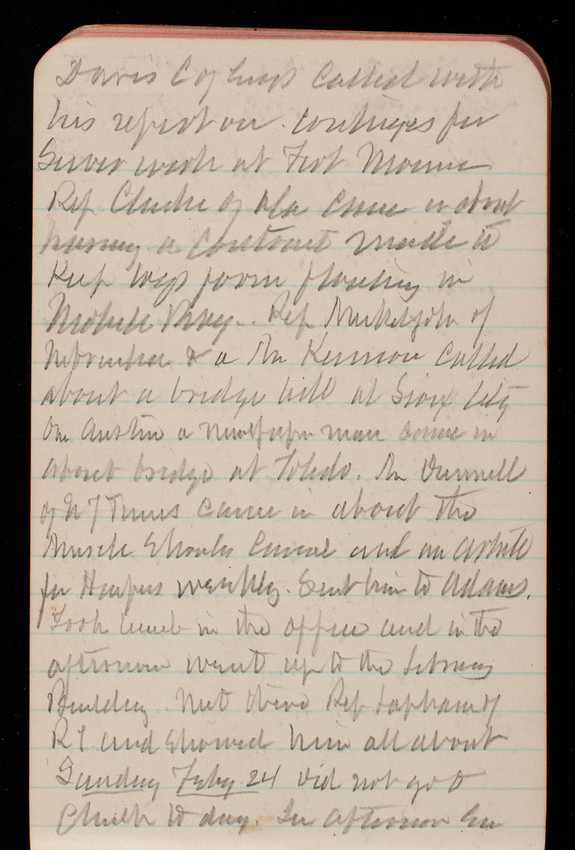 Davis C of Engs called with
his report on continges for
Sewer work at Fort Monroe
Rep Clarke of Ala came in about
having a contract made to
Keep logs from floating in
Mobile Bay. Rep of
Nebraska & a Mr called
about a bridge bill at Sioux City
Mr Austin a newspaper man came in
about bridge at Toledo. Mr Dunnell
of N Y Times came in about the
Muscle Shoals Canal and an article
for Harpers weekly. Sent him to Adams.
Took lunch in the office and in the
afternoon went up to the Library
Building Met there Rep Lapham of
R I and showed him all about
Sunday Feby 24 Did not go to
Church to day. In afternoon Gen